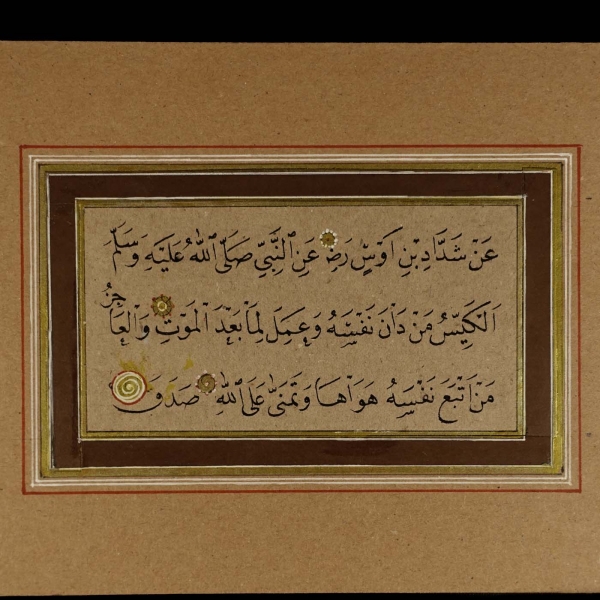 عَنْ شَدَّادِ بْنِ اَوْسٍ رَضِ عَنِ النَّبِيِّ صَلَّى اللّٰهُ عَلَيْهِ وَسَلَّمَ
اَلْكَيِّسُ مَنْ دَانَ نَفْسَهُ وَعَمِلَ لِمَا بَعْدَ الْمَوْتِ وَالْعَاجِزُ
مَنْ اَتْبَعَ نَفْسَهُ هَوَاهَا وَتَمَنَّى عَلَى اللّٰهِ صَدَقَ